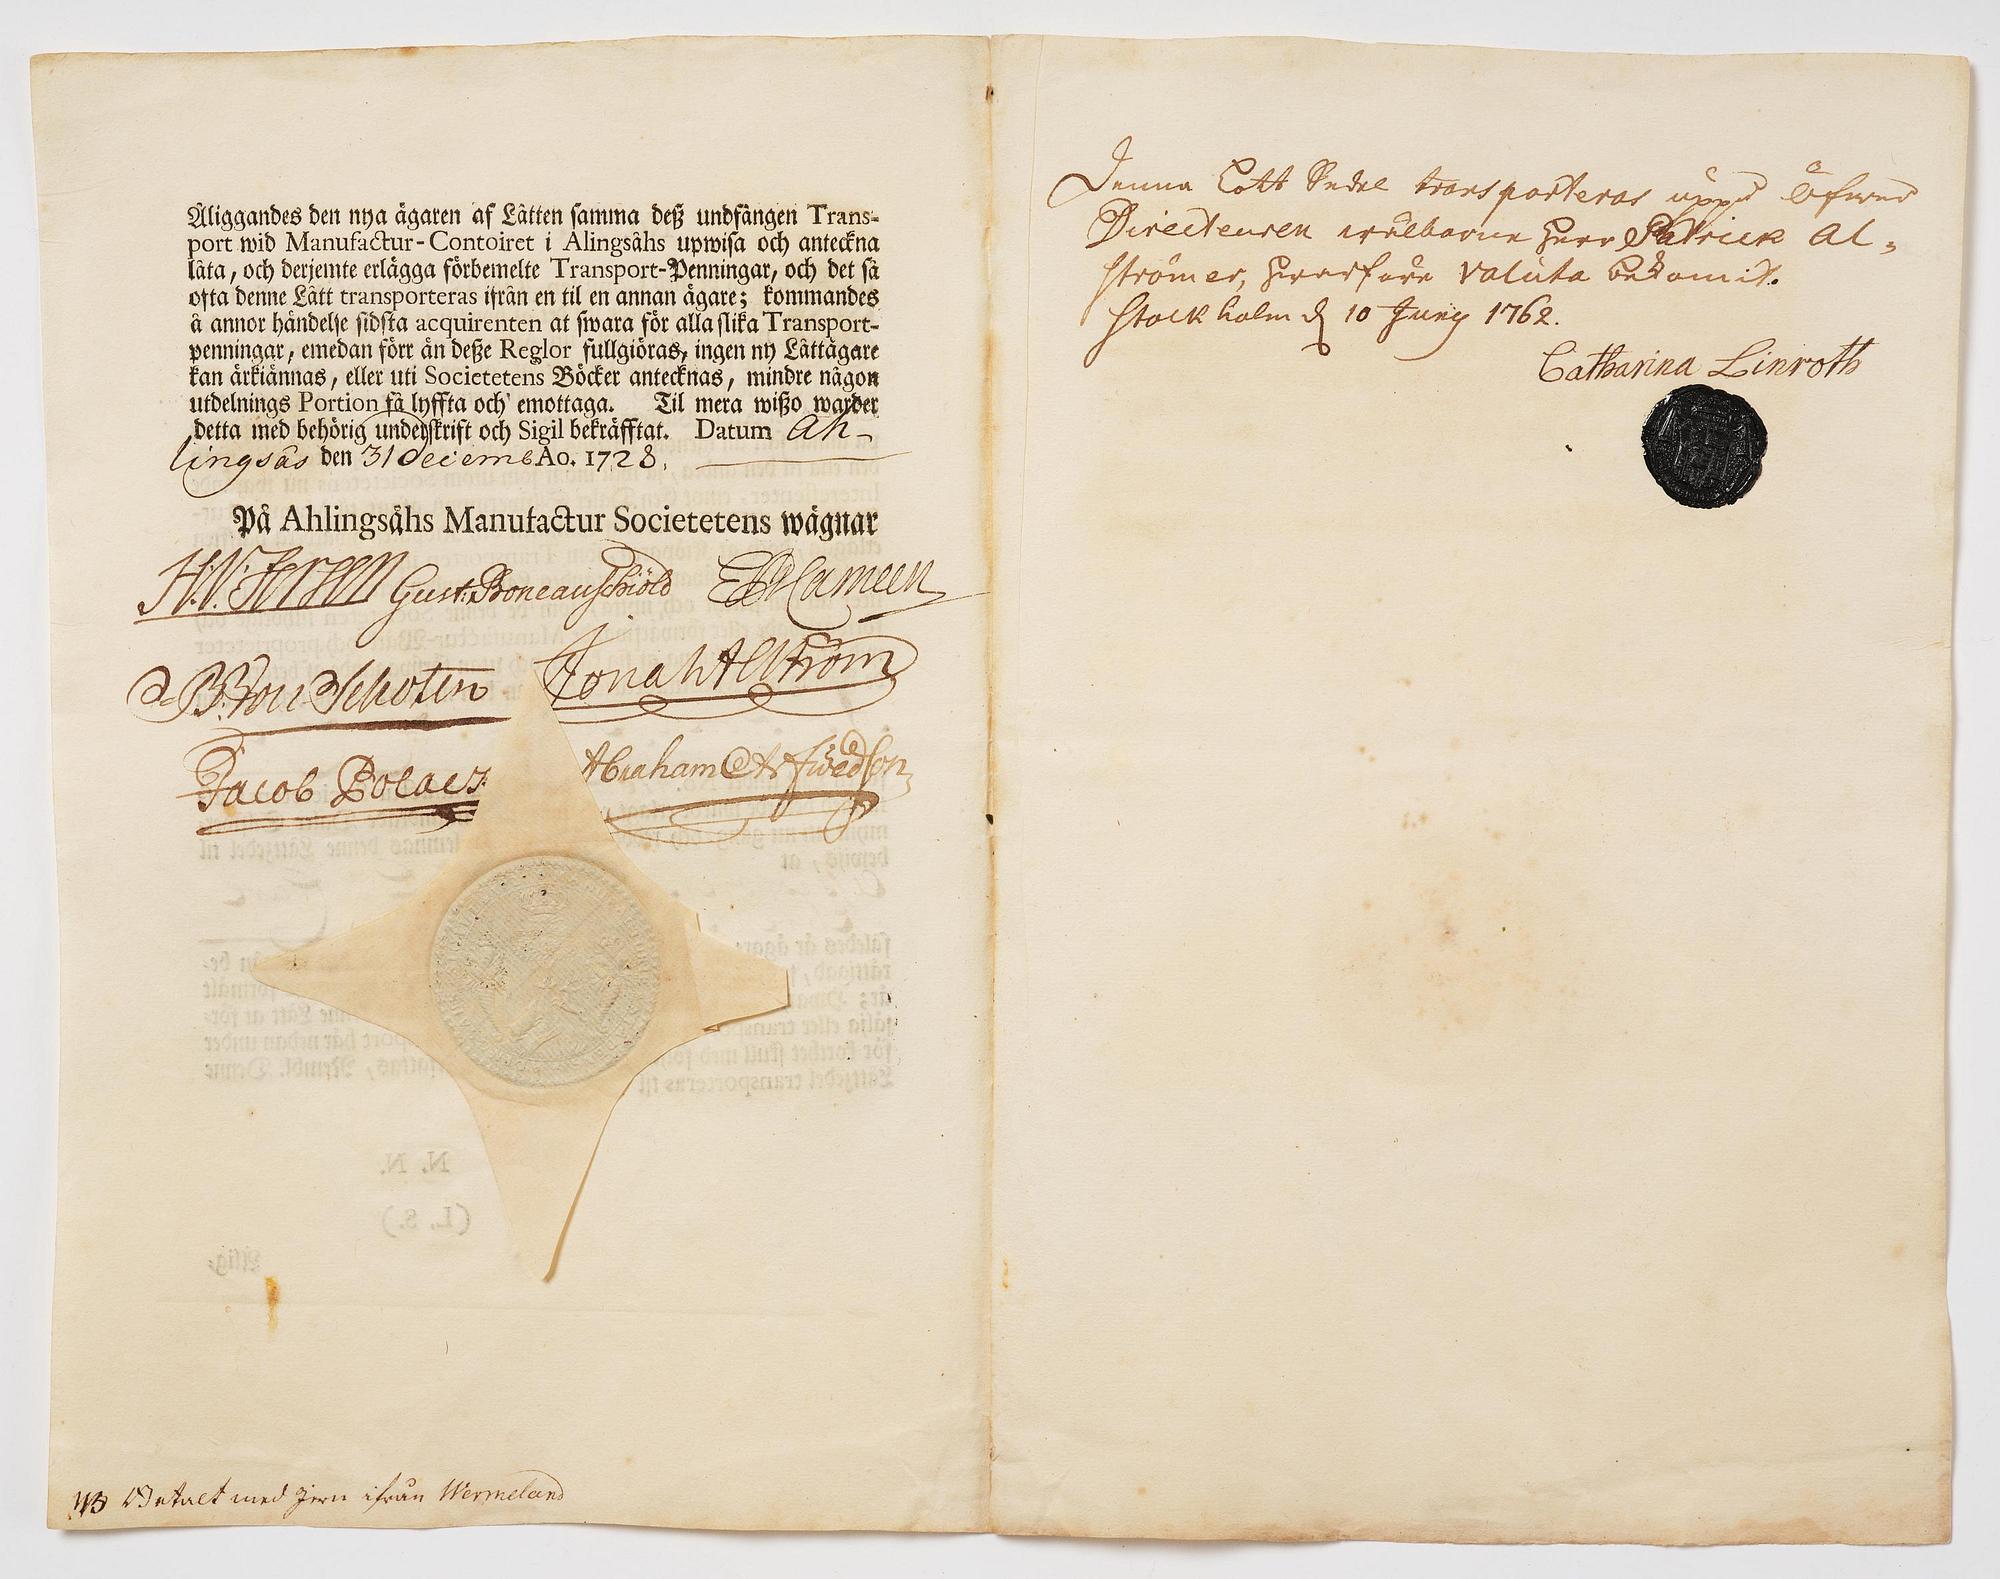 Åliggandes den nya ägaren af Låtten samma deß undfången Trans-
port wid Manufactur-Contoiret i Alingsåhs upwisa och anteckna
låta, och derjemte erlägga förbemelte Transport-Penningar, och det så
ofta denne Lått transporteras ifrån en til en annan ägare; kommandes
å annor händelse sidsta acquirenten at swara för alla slika Transport-
penningar, emedan förr än deße Reglor fullgiöras, ingen ny Låttägare
kan ärkiännas, eller uti Societetens Böcker antecknas, mindre någon
utdelnings Portion få lyffta och emottaga. Til mera wißo warder
detta med behörig underskrift och Sigil bekräfftat. Datum Ah-
lingsås den 31 Decemb Ao. 1728.
På Ahlingsåhs Manufactur Societetens wägnar
H.V. Fersen Gust. Boneauschiöld Cameen
von Schoten Jonas Alström
Jacob Polack Abraham Arfwedson
N. N.
(L. S.)
NB Betalt med Jern ifrån Wermeland
Denna Lott Sedel transporteras uppå Öfwer
Directeuren wälborne Herr Patrick Al-
strömer, hwarföre valuta bekomit.
Stockholm d 10 Juny 1762.
Catharina Linroth